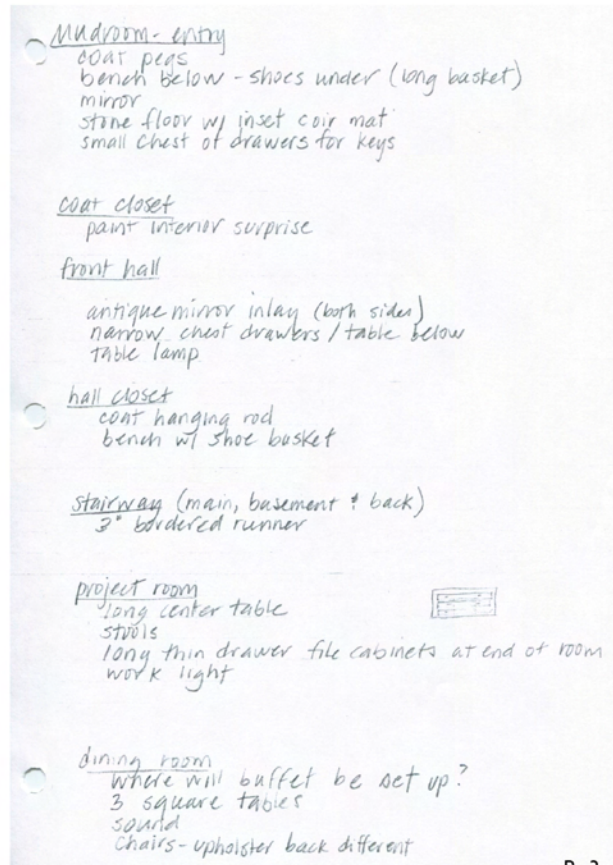 Mudroom - entry
coat pegs
bench below - shoes under (long basket)
mirror
stone floor w/ inset coir mat
small chest of drawers for keys
coat closet
paint interior surprise
front hall
antique mirror inlay (both sides)
narrow chest drawers / table below
table lamp
hall closet
coat hanging rod
bench w/ shoe basket
stairway (main, basement & back)
3" bordered runner
project room
long center table
stools
long thin drawer file cabinets at end of room
work light
dining room
where will buffet be set up?
3 square tables
sound
chairs - upholster back different